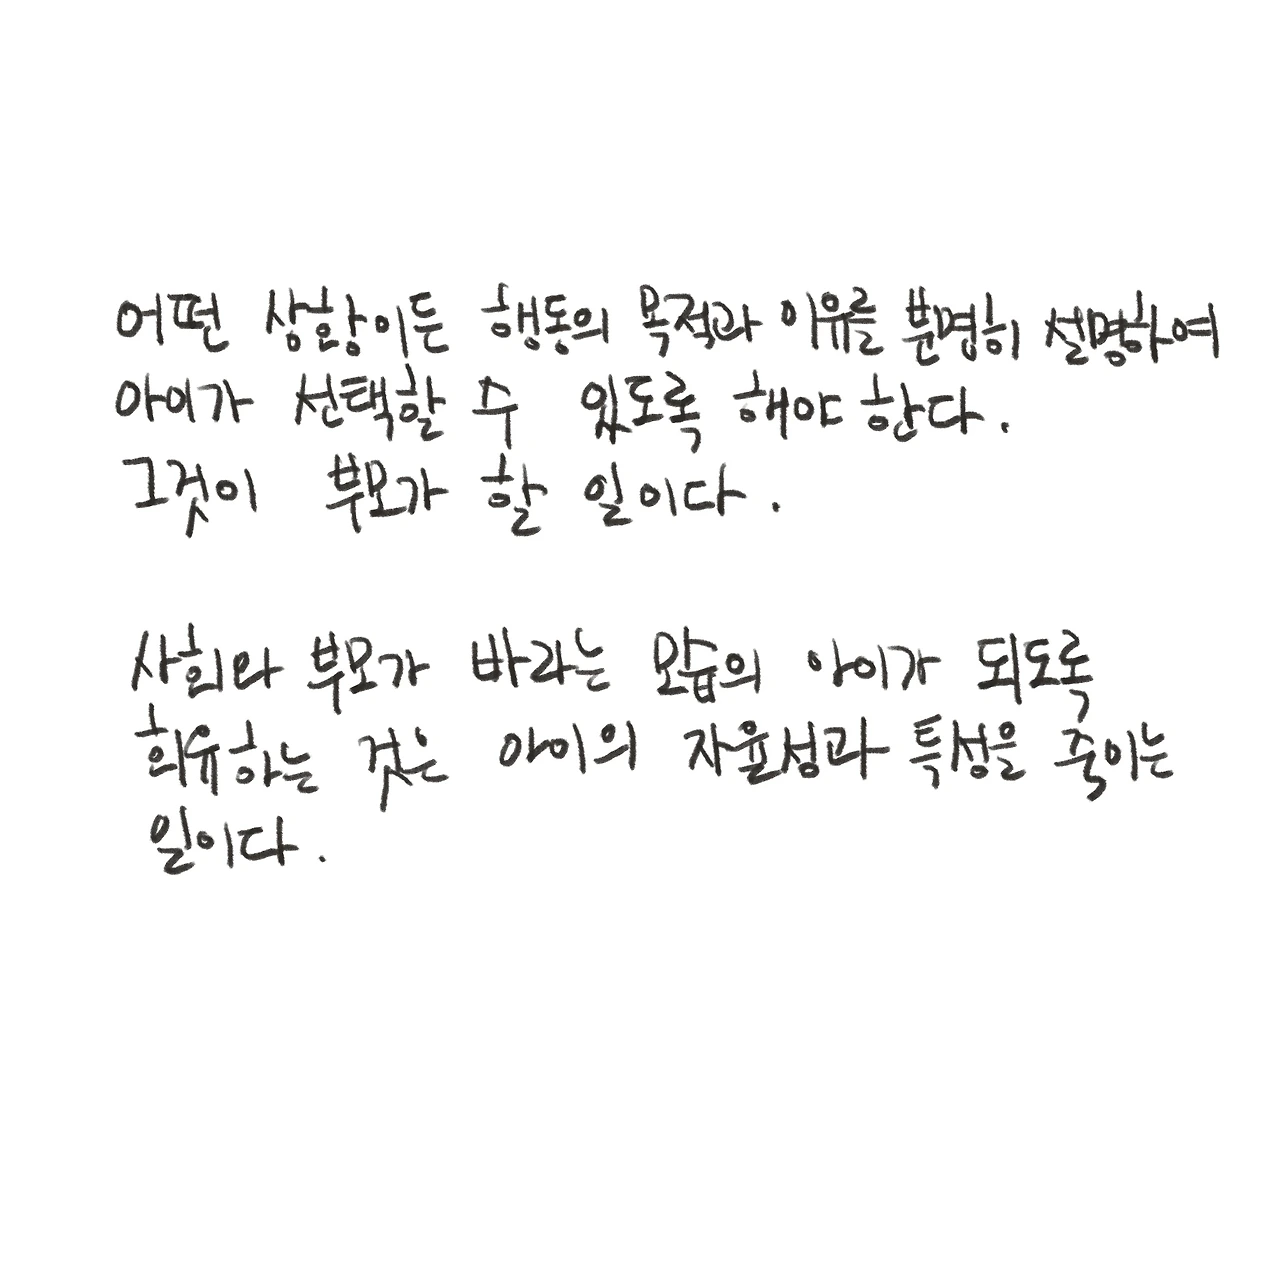 어떤 상황이든 행동의 목적과 이유를 분명히 설명하여
아이가 선택할 수 있도록 해야 한다.
그것이 부모가 할 일이다.
사회와 부모가 바라는 모습의 아이가 되도록
회유하는 것은 아이의 자율성과 특성을 죽이는
일이다.